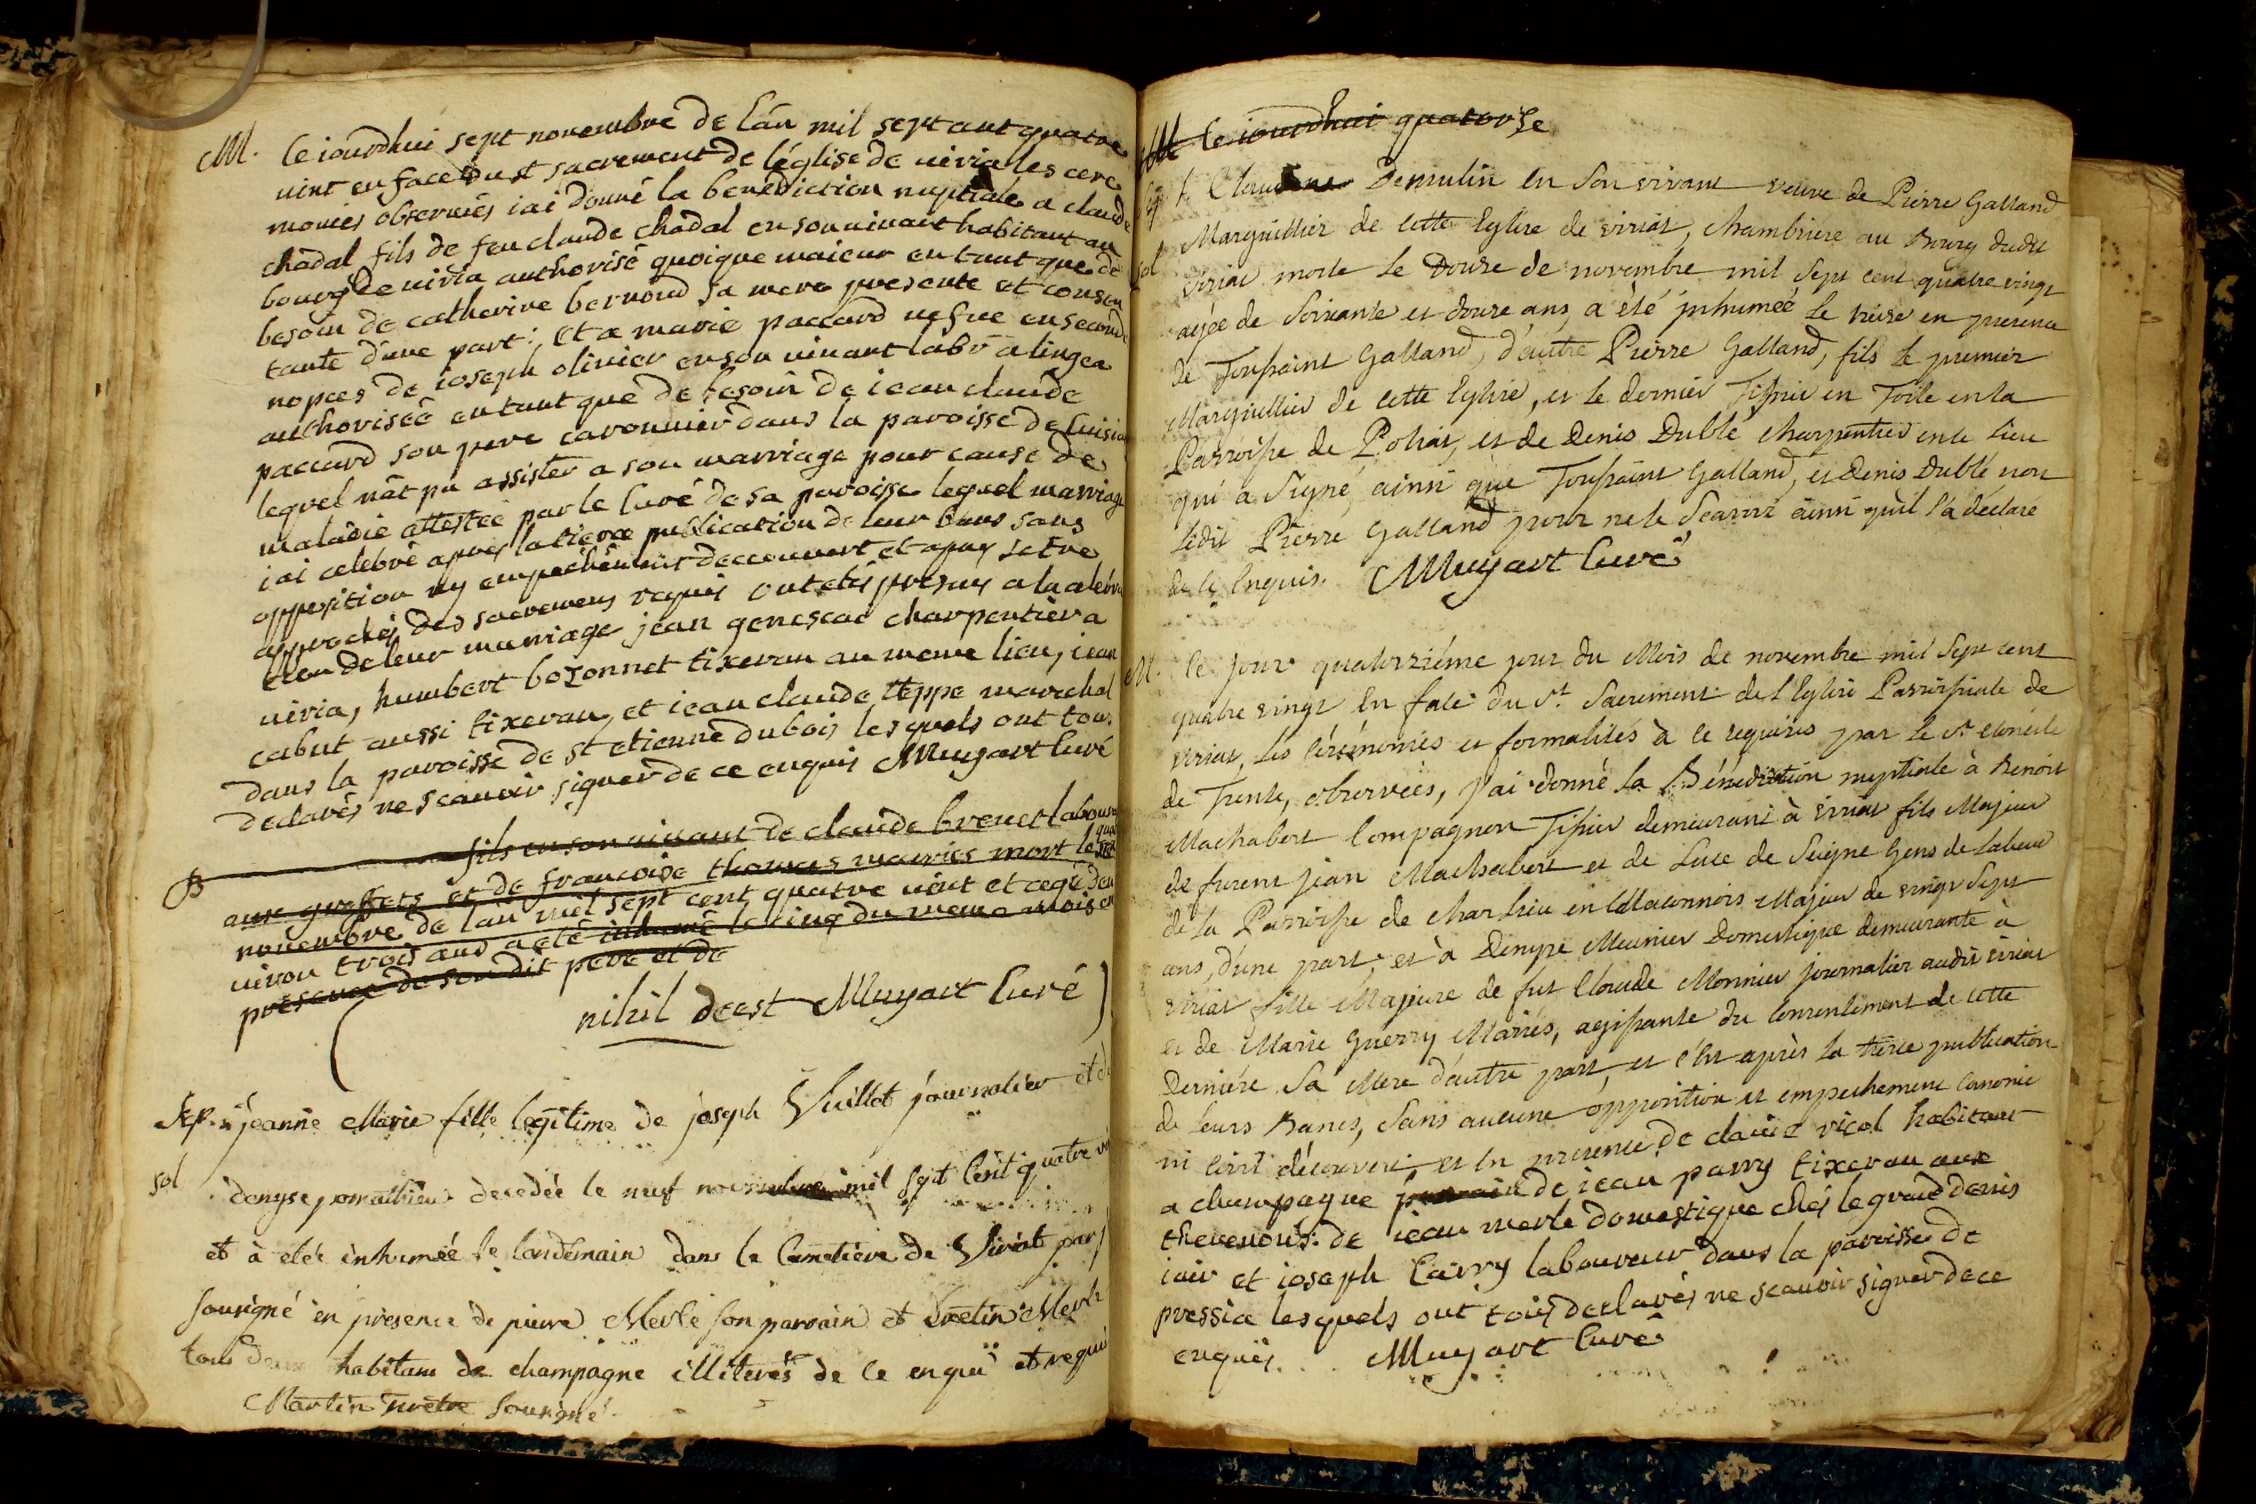 M. le iourdhui sept novembre de l'an mil sept cent quatre
vint en face du st sacrement de l'église de viria les cere
monies observées iai donné la benédiction nuptiale a claude
chadal fils de feu claude chadal en son vivant habitant au
bourg de viria authorisé quoique maieur en tant que de
besoin de catherine bernoud sa mere presente et consen
tante d'une part; et a marie paccard vefve en seconde
nopces de ioseph olivier en son vivant labr a lingea
authorisée en tant que de besoin de iean claude
paccard son pere caronnier dans la paroisse de cuisia
lequel nât pu assister a son marriage pour cause de
maladie attestée par le curé de sa paroisse lequel marriage
iai celebré apres la tierce publication de leur bans sans
opposition ny empechement deccouvert et apres setre
approchés des sacremens requis ont etés presens a la celebra
tion de leur marriage jean genescae charpentier a
viria, humbert bozonnet tixeran au meme lieu, iean
cabut aussi tixeran, et iean claude teppe marechal
dans la paroisse de st etienne dubois lesquels ont tous
declarés ne scauoir signer de ce enquis Muyart Curé
B fils en son vivant de claude brevet laboureur
aux greffets et de francoise thomas mariés mort le quatre
novembre de lan mil sept cent quatre vint et agé den
viron trois ans a eté inhumé le cinq du meme mois en
presence de son dit pere et de
nihil deest Muyart Curé
Sep. jeanne Marie fille legitime de joseph Vuillot journalier et de
sol denyse pomathieu decedée le neuf novembre mil sept cent quatre vin
et à etée inhumée le landemain dans le cimetière de Viriat par
sousigné en présence de pierre Merle son parrain et Brelin Merle
tous deux habitans de champagne illiterés de ce enqui et requi
Martin prêtre sousigné.
M le iourdhui quatorse
Sep
sol Claudine Demulin en son vivant veuve de Pierre Galland
Marguillier de cette Eglise de viriat, chambriere au bourg dudit
viriat morte le Douze de novembre mil sept cent quatre vingt
agée de soixante et douze ans, a été inhumée le treize en presence
de Toussaint Galland, d'autre Pierre Galland, fils le premier
Marguillier de cette Eglise, et le dernier Tissier en Toile en la
Parroisse de Poliat, et de Denis Dublé charpentier en ce lieu
qui a signé, ainsi que Toussaint Galland, et Denis Dublé non
ledit Pierre Galland pour ne le sçavoir ainsi qu'il l'a déclaré
de ce Enquis. Muyart Curé
M. le jour quatorzième jour du Mois de novembre mil sept cent
quatre vingt en face du st. Sacrement de l'Eglise Parroissiale de
viriat, les cérémonies et formalités à ce requises par le st Concile
de Trente, observées, j'ai donné la Bénédiction nuptiale à Benoit
Machabert Compagnon Tissier demeurant à viriat fils Majeur
de furent jean Machabert et de Luce de Seigne Gens de Labeur
de la Parroisse de charlieu en Maconnois Majeur de vingt Sept
ans, d'une part, et à Denyse Meunier Domestique demeurante à
viriat fille Majeure de fut Claude Monnier journalier audit viriat
et de Marie Guerry Mariés, agissante du consentement de cette
Dernière sa Mere d'autre part, et c'est après la tierce publication
de leurs Bancs, sans aucune opposition et empechement canonic
ni civil découvert, et en presence de claude vicol habitant
a champagne parrain de iean parry tixeran aux
thevenons. de iean merle domestique chés le grand denis
iair et ioseph carry laboureur dans la paroisse de
pressia lesquels ont tous declarés ne scauoir signer de ce
enquis. Muyart Curé